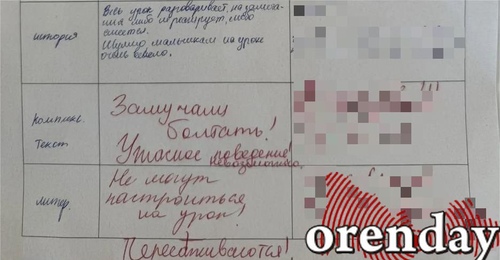 история
Весь урок разговаривает, на замеча-
ния либо игнорирует, либо
смеется.
Шумно, мальчикам на уроке
очень весело.
комплекс.
текст
Замучали
болтать!
Ужасное поведение!
невозможно.
литер.
Не могут
настроиться
на урок!
Пересаживаются!
orenday